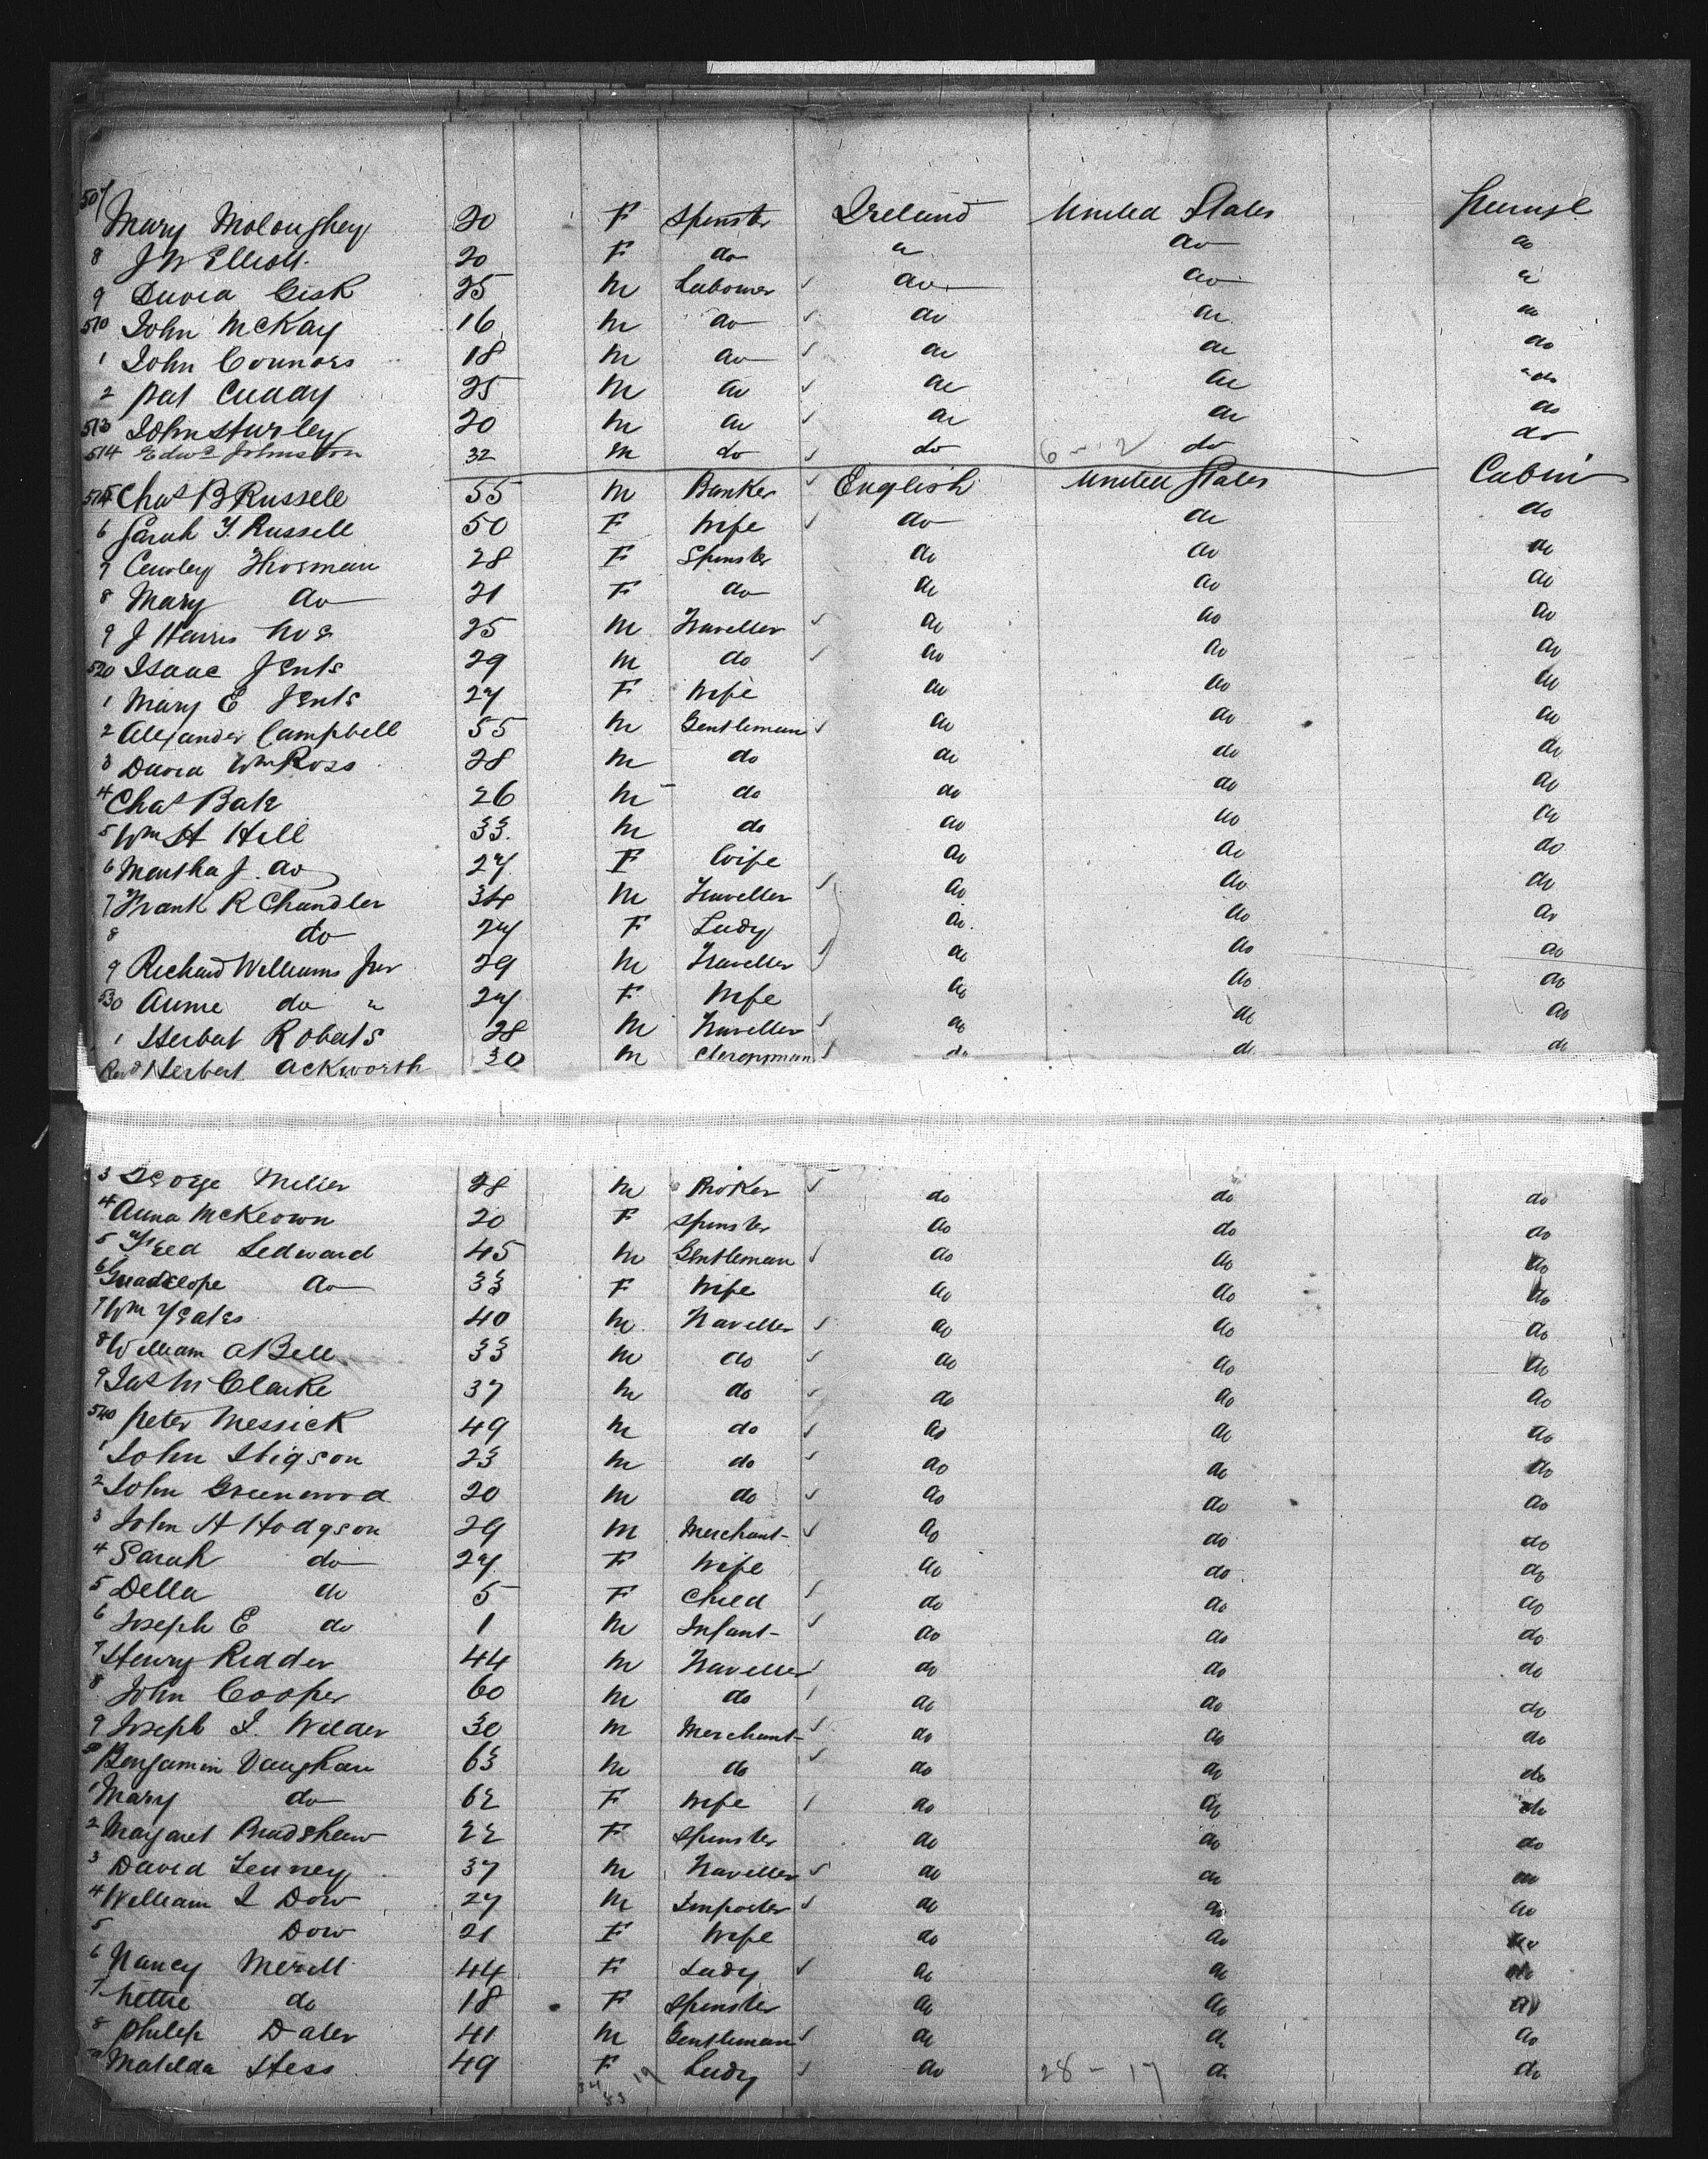 507 Mary Moloughey 20 F Spinster Ireland United States Steerage
8 J W Elliott 20 F do " do do
9 David Sisk 25 M Labourer do do "
510 John McKay 16 M do do do do
1 John Connors 18 M do do do do
2 Pat Cuddy 25 M do do do do
513 John Hurley 20 M do do do do
514 Edwd Johnston 32 M do do 6 - 2 do do
515 Chas B Russell 55 M Banker English United States Cabin
6 Sarah Y. Russell 50 F Wife do do do
7 Thosman 28 F Spinster do do do
8 Mary do 21 F do do do do
9 J Harris 25 M Traveller do do do
520 Isaac Jents 29 M do do do do
1 Mary E Jents 27 F Wife do do do
2 Alexander Campbell 55 M Gentleman do do do
3 David Wm Ross 28 M do do do do
4 Chas Bate 26 M do do do do
5 Wm H Hill 33 M do do do do
6 Martha J. do 27 F Wife do do do
7 Frank R Chandler 34 M Traveller do do do
8 do 27 F Lady do do do
9 Richard Williams Jnr 29 M Traveller do do do
530 Annie do " 27 F Wife do do do
1 Herbert Roberts 28 M Traveller do do do
Revd Herbert Ackworth 30 M Clergyman do do do
3 George Miller 28 M Broker do do do
4 Anna McKeown 20 F Spinster do do do
5 Fred Ledward 45 M Gentleman do do do
6 Guadelope do 33 F Wife do do do
7 Wm Yeates 40 M Traveller do do do
8 William A Bell 33 M do do do do
9 Jas M Clarke 37 M do do do do
540 Peter Messick 49 M do do do do
1 John Stigson 23 M do do do do
2 John Greenwood 20 M do do do do
3 John H Hodgson 29 M Merchant do do do
4 Sarah do 27 F Wife do do do
5 Della do 5 F Child do do do
6 Joseph E do 1 M Infant do do do
7 Henry Ridder 44 M Traveller do do do
8 John Cooper 60 M do do do do
9 Joseph I. Wilder 30 M Merchant do do do
50 Benjamin Vaughan 63 M do do do do
1 Mary do 62 F Wife do do do
2 Margaret Bradshaw 22 F Spinster do do do
3 David Tenney 37 M Traveller do do do
4 William I Dow 27 M Importer do do do
5 Dow 21 F Wife do do do
6 Nancy Merell 44 F Lady do do do
7 Nettie do 18 F Spinster do do do
8 Philip Daler 41 M Gentleman do do do
Matilda Hess 49 F Lady do 28 - 17 do do
34 33 19